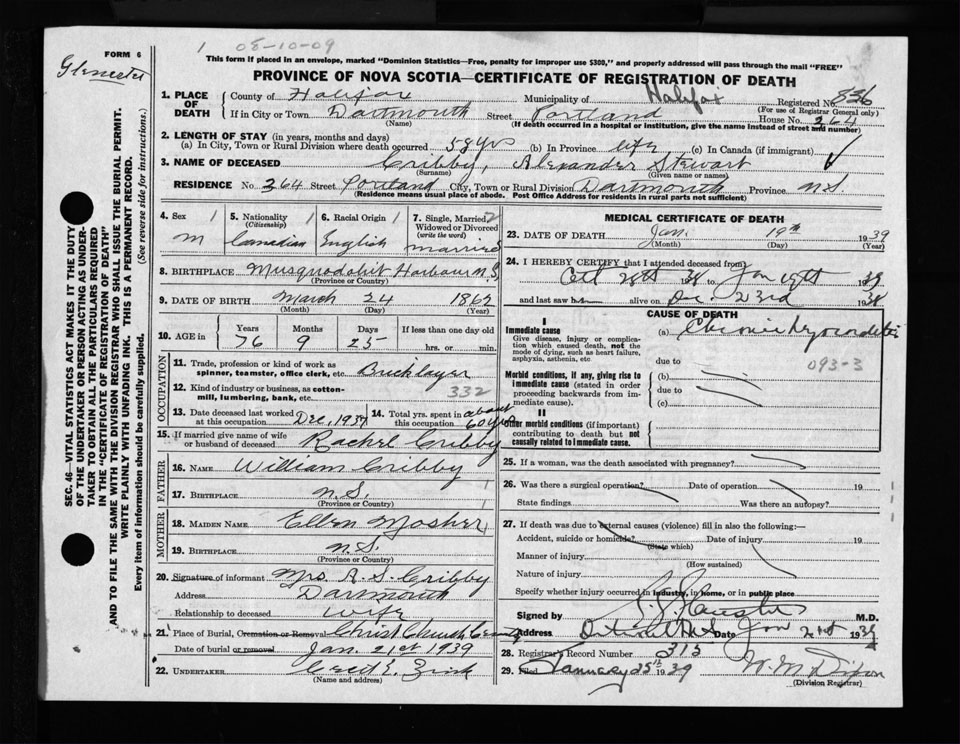 1 08-10-09
FORM 6
This form if placed in an envelope, marked "Dominion Statistics—Free, penalty for improper use $300," and properly addressed will pass through the mail "FREE"
PROVINCE OF NOVA SCOTIA—CERTIFICATE OF REGISTRATION OF DEATH
SEC. 46—VITAL STATISTICS ACT MAKES IT THE DUTY
OF THE UNDERTAKER OR PERSON ACTING AS UNDER-
TAKER TO OBTAIN ALL THE PARTICULARS REQUIRED
IN THE "CERTIFICATE OF REGISTRATION OF DEATH"
AND TO FILE THE SAME WITH THE DIVISION REGISTRAR WHO SHALL ISSUE THE BURIAL PERMIT.
WRITE PLAINLY WITH UNFADING INK. THIS IS A PERMANENT RECORD.
Every item of information should be carefully supplied. (See reverse side for instructions.)
1. PLACE OF DEATH County of Halifax Municipality of Halifax Registered No. 836
(For use of Registrar General only)
If in City or Town Dartmouth Street Portland House No. 264
(Name) (If death occurred in a hospital or institution, give the name instead of street and number)
2. LENGTH OF STAY (in years, months and days)
(a) In City, Town or Rural Division where death occurred 58 yrs (b) In Province life (c) In Canada (if immigrant)
3. NAME OF DECEASED Cribby, Alexander Stewart
(Surname) (Given name or names)
RESIDENCE No. 264 Street Portland City, Town or Rural Division Dartmouth Province N.S.
(Residence means usual place of abode. Post Office Address for residents in rural parts not sufficient)
4. Sex 1 5. Nationality 1 6. Racial Origin 1 7. Single, Married, 2
(Citizenship) Widowed or Divorced
(write the word)
M Canadian English married
8. BIRTHPLACE Musquodoboit Harbour N.S.
(Province or Country)
9. DATE OF BIRTH March 24 1862
(Month) (Day) (Year)
10. AGE in Years Months Days If less than one day old
76 9 25 hrs. or min.
OCCUPATION
11. Trade, profession or kind of work as
spinner, teamster, office clerk, etc. Bricklayer
12. Kind of industry or business, as cotton-
mill, lumbering, bank, etc. 332
13. Date deceased last worked
at this occupation Dec, 1937
14. Total yrs. spent in
this occupation about 60 yrs
15. If married give name of wife
or husband of deceased Rachel Cribby
FATHER
16. NAME William Cribby
17. BIRTHPLACE N.S.
(Province or Country)
MOTHER
18. MAIDEN NAME Ellen Mosher
19. BIRTHPLACE N.S.
(Province or Country)
20. Signature of informant Mrs. A. S. Cribby
Address Dartmouth
Relationship to deceased wife
21. Place of Burial, Cremation or Removal Christ Church
Date of burial or removal Jan. 21st 1939
22. UNDERTAKER Cecil E. Zink
(Name and address)
MEDICAL CERTIFICATE OF DEATH
23. DATE OF DEATH Jan. 19th 1939
(Month) (Day) (Year)
24. I HEREBY CERTIFY that I attended deceased from
Oct 28th 1938 Jan 19th 1939
and last saw h alive on Dec. 23rd 1938
CAUSE OF DEATH
I
Immediate cause
Give disease, injury or complica-
tion which caused death, not the
mode of dying, such as heart failure,
asphyxia, asthenia, etc
(a) Chronic Myocarditis
093-3
due to
Morbid conditions, if any, giving rise to
immediate cause (stated in order
proceeding backwards from im-
mediate cause).
(b)
due to
(c)
II
Other morbid conditions (if important)
contributing to death but not
causally related to immediate cause.
25. If a woman, was the death associated with pregnancy?
26. Was there a surgical operation? Date of operation 19
State findings Was there an autopsy?
27. If death was due to external causes (violence) fill in also the following:—
Accident, suicide or homicide? Date of injury 19
(State which)
Manner of injury
(How sustained)
Nature of injury
Specify whether injury occurred in industry, in home, or in public place
Signed by M.D.
Address Date Jan 21st 1939
28. Registrar's Record Number 315
29. Filed January 25th 1939 W. M. Dixon
(Division Registrar)